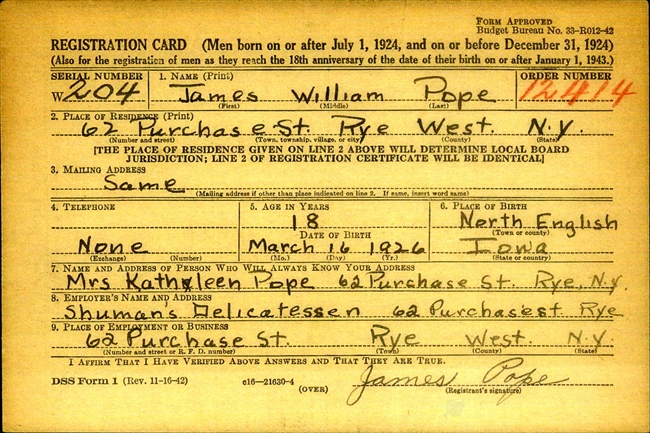 FORM APPROVED
Budget Bureau No. 33-R012-42
REGISTRATION CARD (Men born on or after July 1, 1924, and on or before December 31, 1924)
(Also for the registration of men as they reach the 18th anniversary of the date of their birth on or after January 1, 1943.)
SERIAL NUMBER 1. NAME (Print) ORDER NUMBER
W 204 James William Pope 12414
(First) (Middle) (Last)
2. PLACE OF RESIDENCE (Print)
62 Purchase St. Rye West. N.Y.
(Number and street) (Town, township, village, or city) (County) (State)
[THE PLACE OF RESIDENCE GIVEN ON LINE 2 ABOVE WILL DETERMINE LOCAL BOARD
JURISDICTION; LINE 2 OF REGISTRATION CERTIFICATE WILL BE IDENTICAL]
3. MAILING ADDRESS
Same
(Mailing address if other than place indicated on line 2. If same, insert word same)
4. TELEPHONE 5. AGE IN YEARS 6. PLACE OF BIRTH
18 North English
DATE OF BIRTH (Town or county)
None March 16 1926 Iowa
(Exchange) (Number) (Mo.) (Day) (Yr.) (State or country)
7. NAME AND ADDRESS OF PERSON WHO WILL ALWAYS KNOW YOUR ADDRESS
Mrs Kathleen Pope 62 Purchase St. Rye, N.Y.
8. EMPLOYER'S NAME AND ADDRESS
Shuman's Delicatessen 62 Purchase st Rye
9. PLACE OF EMPLOYMENT OR BUSINESS
62 Purchase St. Rye West. N.Y.
(Number and street or R. F. D. number) (Town) (County) (State)
I AFFIRM THAT I HAVE VERIFIED ABOVE ANSWERS AND THAT THEY ARE TRUE.
DSS Form 1 (Rev. 11-16-42) c16—21630-4 James Pope
(OVER) (Registrant's signature)